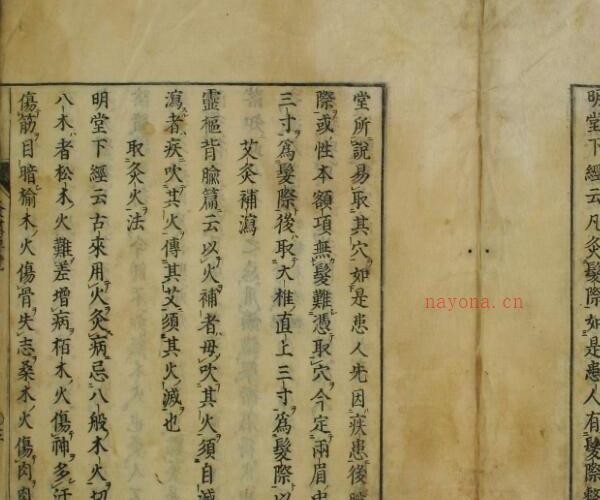 明堂下經云凡灸髮際如是患人有髮
堂所說易取其穴如是患人先因疾患後
際或性本額項無髮難憑取穴今定兩眉
三寸為髮際後取大椎直上三寸為髮際以
艾灸補瀉
靈樞背腧篇云以火補者毋吹其火須自滅
瀉者疾吹其火傳其艾須其火滅也
取灸火法
明堂下經云古來用火灸病忌八般木火切
八木者松木火難差增病栢木火傷神多汗
傷筋目暗榆木火傷骨失志桑木火傷肉肉
nayona.cn